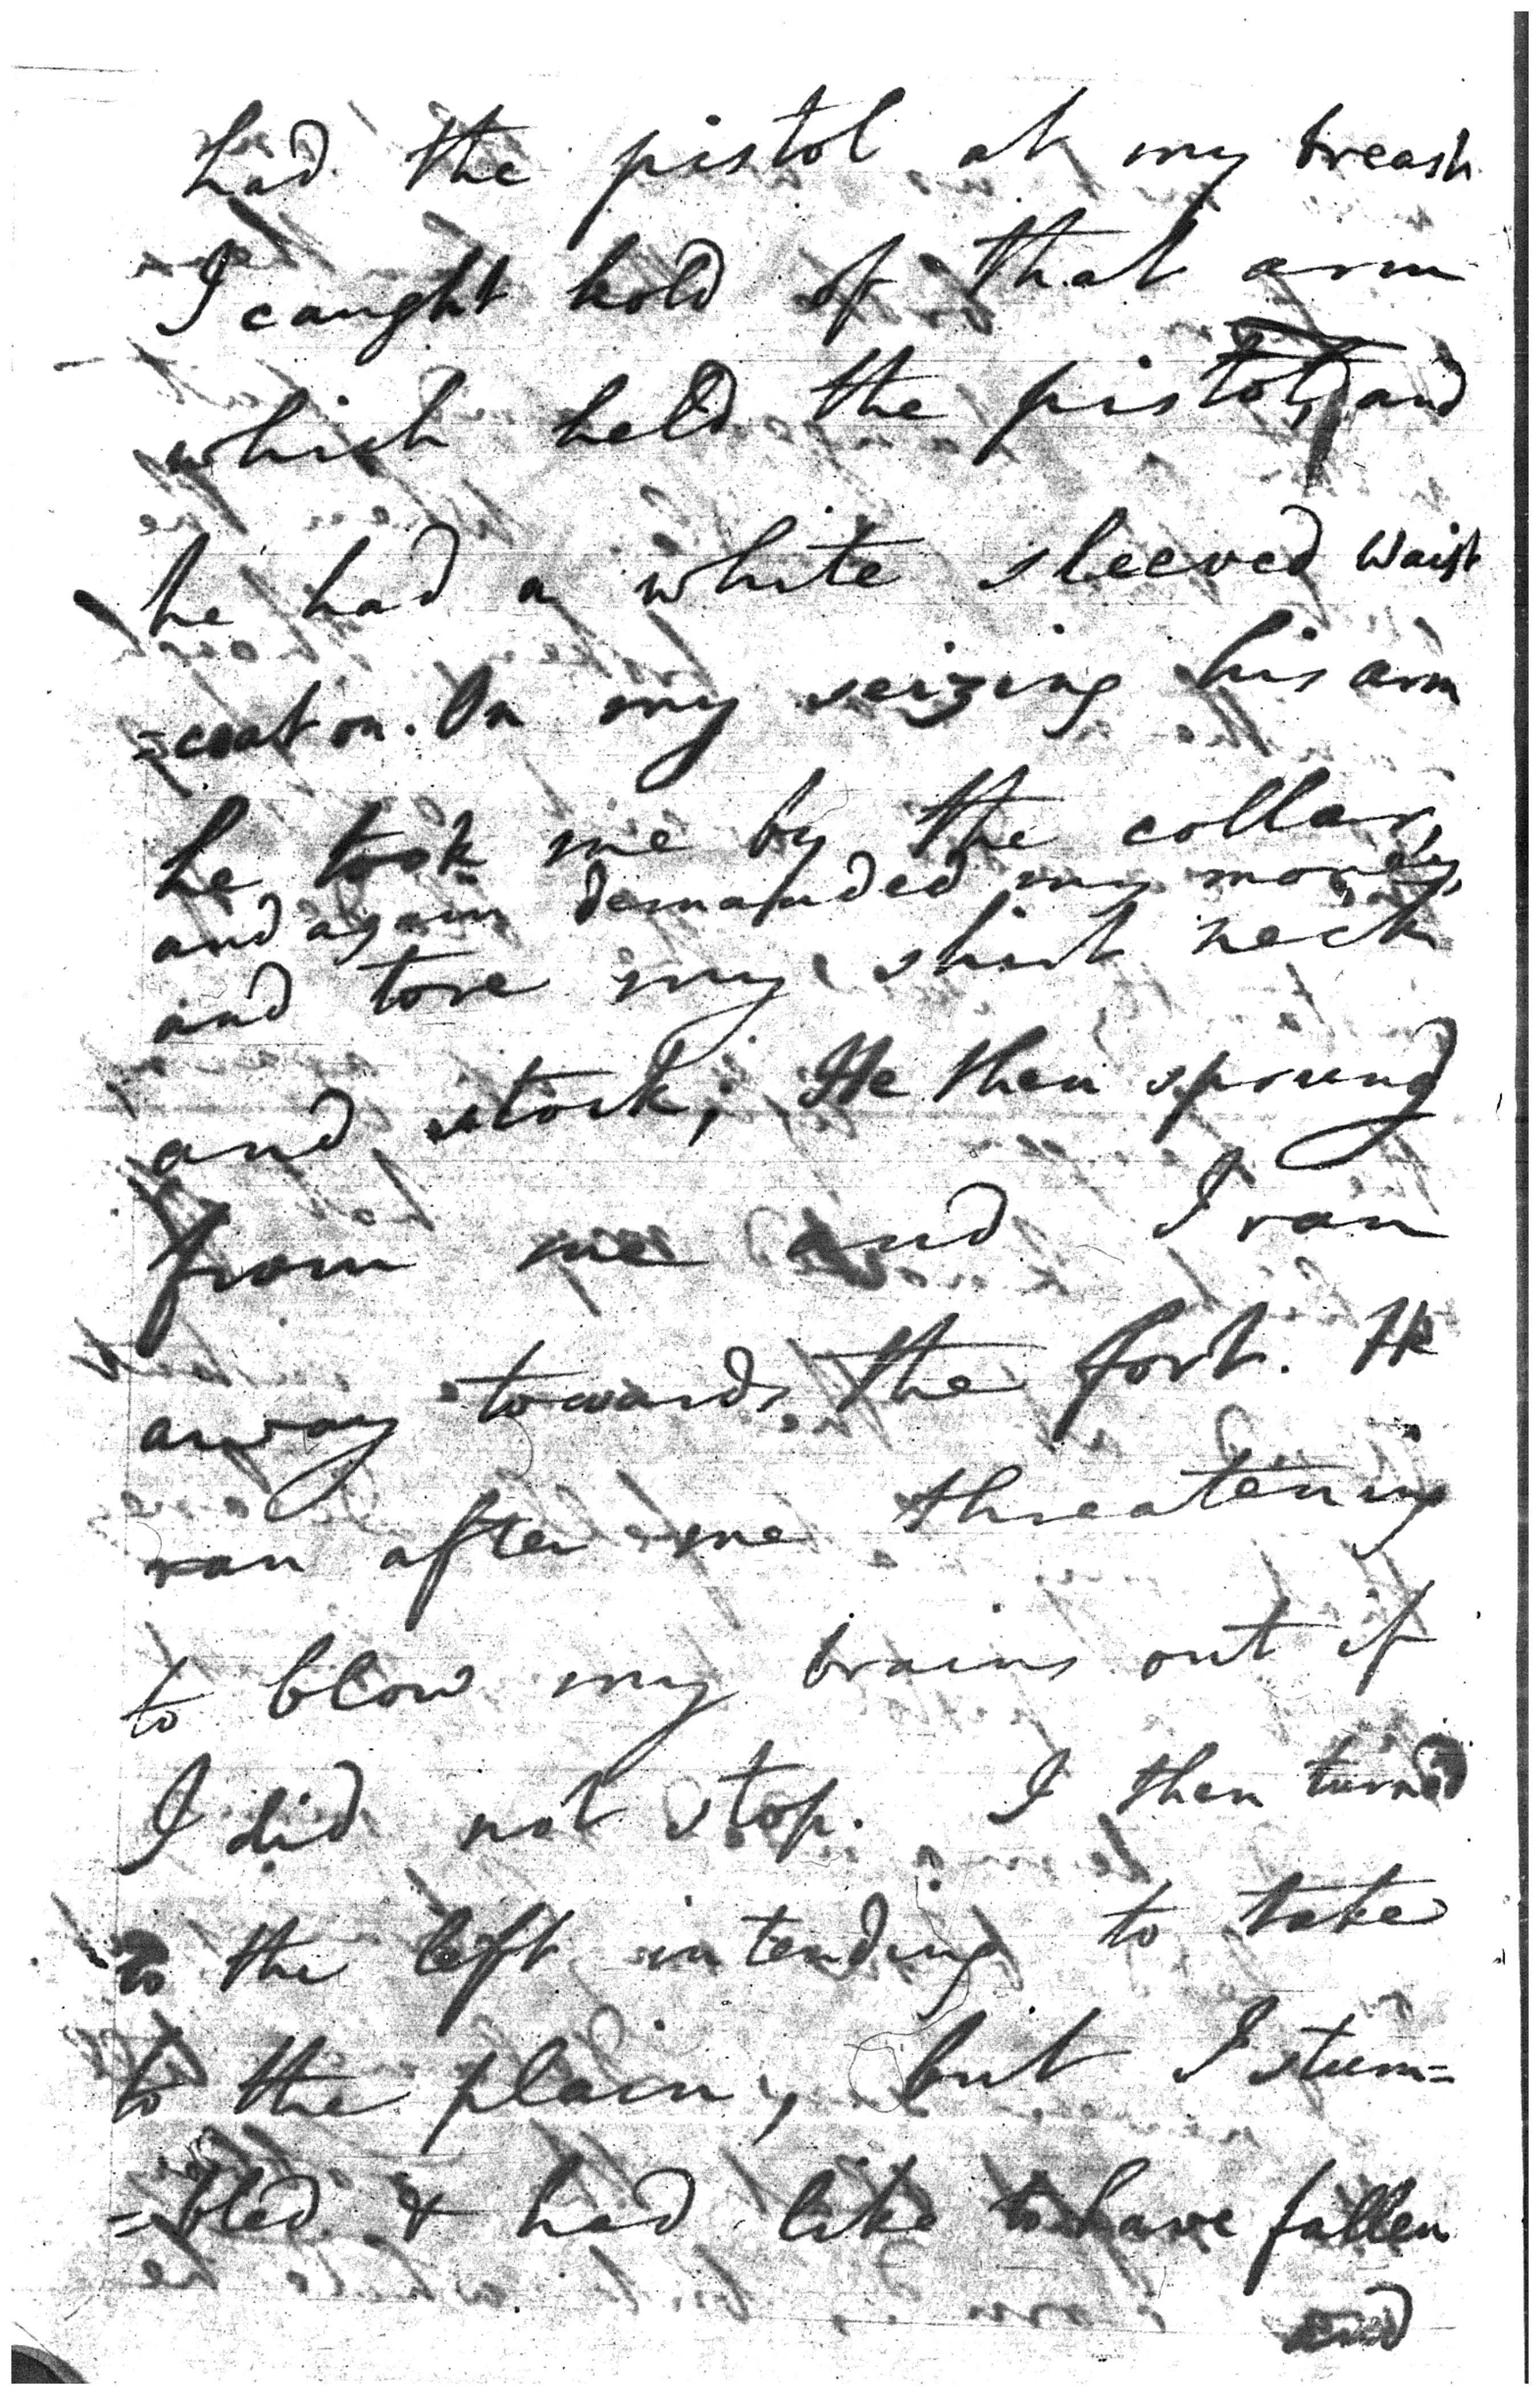 had the pistol at my breast
I caught hold of that arm
which held the pistol, and
he had a white sleeved waist
=coat on. On my seizing his arm
he took me by the collar,
and again demanded my money,
and tore my shirt neck
and stock; He then sprung
from me and I ran
away towards the fort. He
ran after me threatening
to blow my brains out if
I did not stop. I then turned
to the left intending to take
to the plain, but I stum=
=bled & had like to have fallen
and